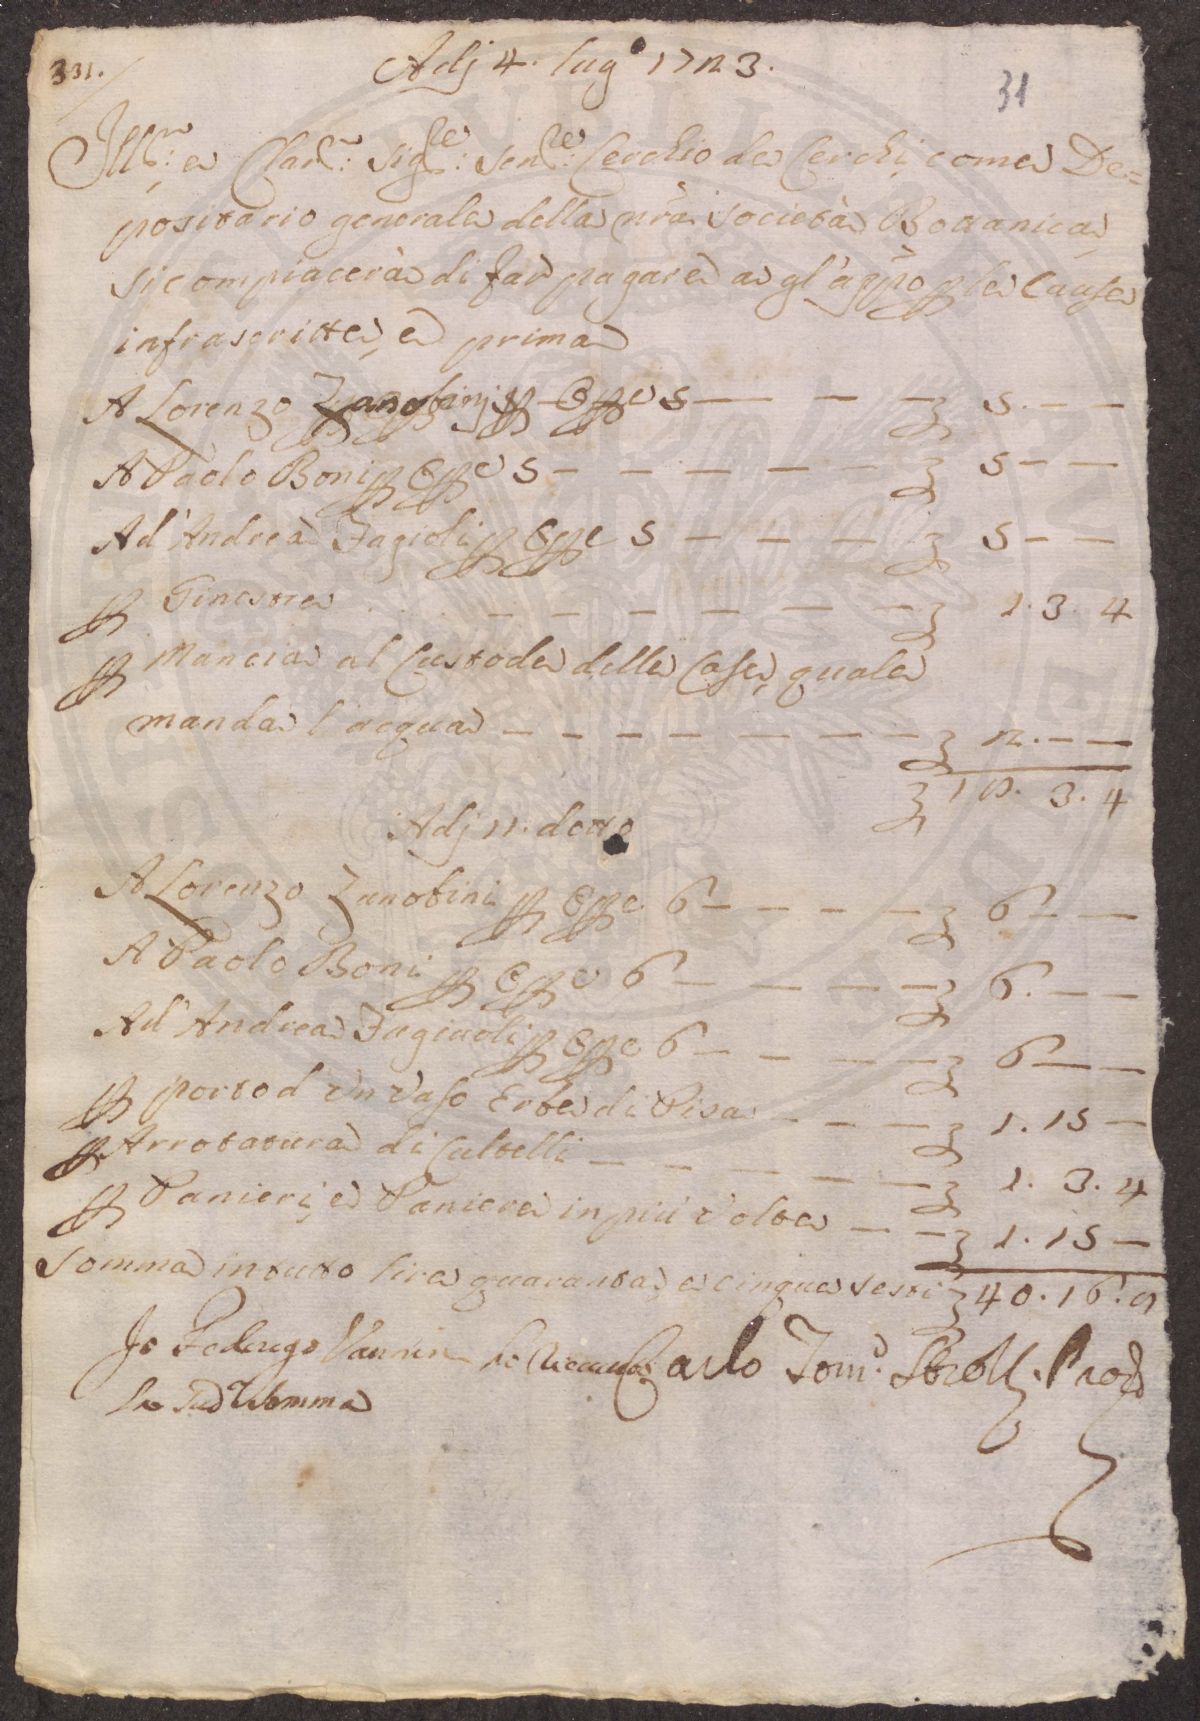 331.
Adj 4. lug.º 1723.
31
Ill.mo e Clar.mo Sig.re Sen.re Cerchio de Cerchi, come De=
positario generale della nrã Società Bottanica
si compiacerà di far pagare a gl'appõ p le Cause
infrascritte, e prima
A Lorenzo Zanobini p Opre 5 — — — 5. — —
A Paolo Boni p Opre 5 — — — — — — 5 — —
Ad' Andrea Fagioli p Opre 5 — — — — 5 — —
p Ginestre — — — — — — — 1. 3. 4
p Mancia al Custode delle Case, quale
manda l'acqua — — — — — — — — 2. — —
18. 3. 4
Adj 11. detto
A Lorenzo Zanobini p Opre 6 — — — — — 6 — —
A Paolo Boni p Opre 6 — — — — — 6. — —
Ad' Andrea Fagiuoli p Opre 6 — — — — 6 — —
p porto d'un Vaso Erbe di Pisa — — — — 1. 15 —
p Arrotatura di Cultelli — — — — — — 1. 3. 4
p Panieri, e Paniere in più volte — — 1. 15 —
Somma in tutto lire quaranta, e cinque sesti 40. 16. 8
Io Federigo Vannini ho ricevuto
la sud.ª somma
Carlo Tom.º Strozzi